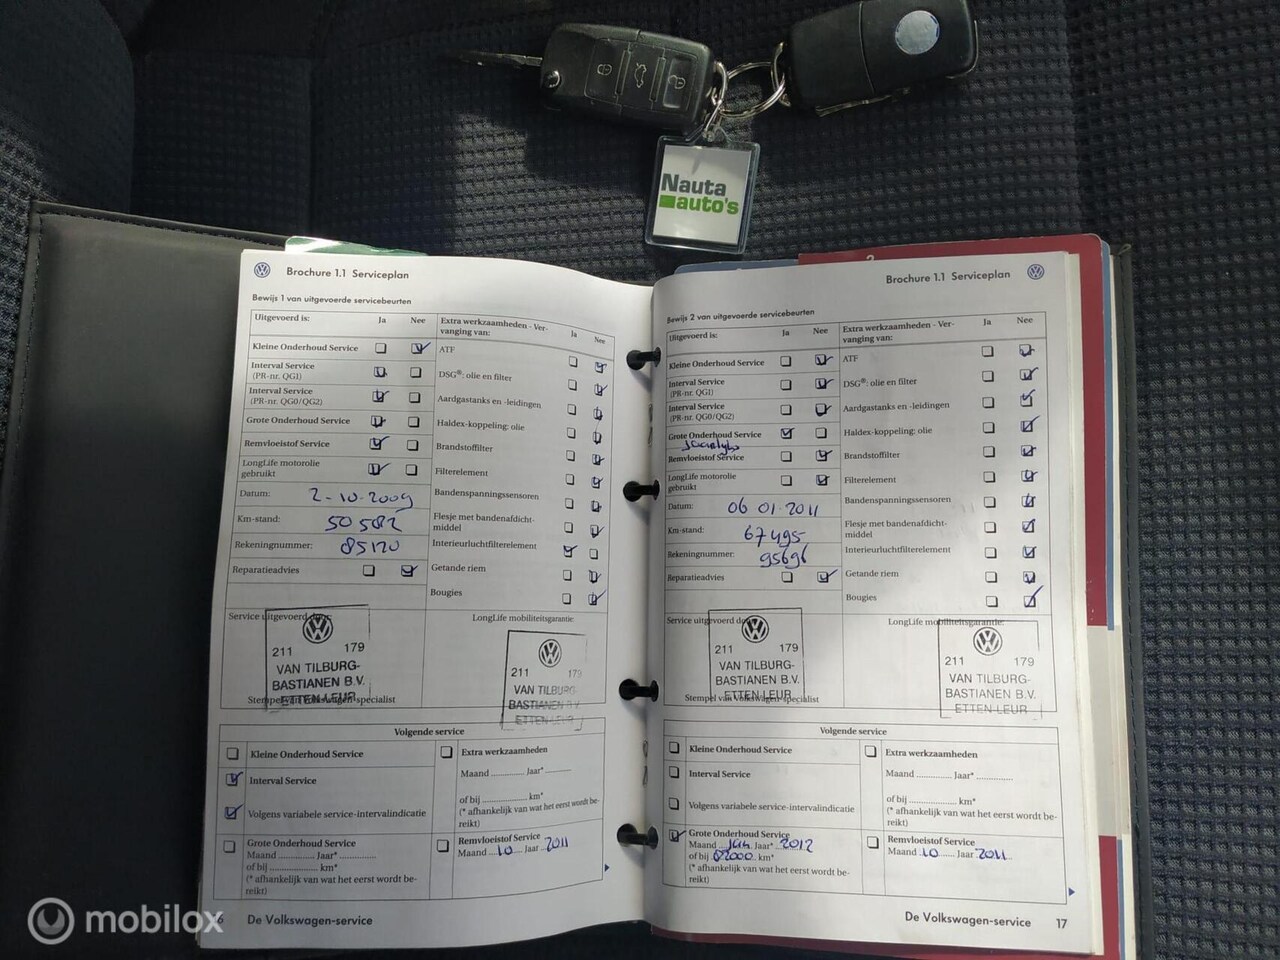 Nauta
auto's
Brochure 1.1 Serviceplan
Bewijs 1 van uitgevoerde servicebeurten
Uitgevoerd is: Ja Nee
Kleine Onderhoud Service
Interval Service
(PR-nr. QG1)
Interval Service
(PR-nr. QG0/QG2)
Grote Onderhoud Service
Remvloeistof Service
LongLife motorolie
gebruikt
Datum: 2-10-2009
Km-stand: 50582
Rekeningnummer: 85120
Reparatieadvies
Extra werkzaamheden - Ver-
vanging van: Ja Nee
ATF
DSG®: olie en filter
Aardgastanks en -leidingen
Haldex-koppeling: olie
Brandstoffilter
Filterelement
Bandenspanningssensoren
Flesje met bandenafdicht-
middel
Interieurluchtfilterelement
Getande riem
Bougies
Service uitgevoerd door:
211 179
VAN TILBURG-
BASTIANEN B.V.
ETTEN-LEUR
Stempel van Volkswagen-specialist
LongLife mobiliteitsgarantie:
211 179
VAN TILBURG-
BASTIANEN B.V.
ETTEN-LEUR
Volgende service
Kleine Onderhoud Service
Interval Service
Volgens variabele service-intervalindicatie
Grote Onderhoud Service
Maand ............ Jaar* ..................
of bij .................... km*
(* afhankelijk van wat het eerst wordt be-
reikt)
Extra werkzaamheden
Maand ............ Jaar* ..............
of bij .................. km*
(* afhankelijk van wat het eerst wordt be-
reikt)
Remvloeistof Service
Maand 10 Jaar 2011
6 De Volkswagen-service
Brochure 1.1 Serviceplan
Bewijs 2 van uitgevoerde servicebeurten
Uitgevoerd is: Ja Nee
Kleine Onderhoud Service
Interval Service
(PR-nr. QG1)
Interval Service
(PR-nr. QG0/QG2)
Grote Onderhoud Service
Remvloeistof Service
LongLife motorolie
gebruikt
Datum: 06 01-2011
Km-stand: 67495
Rekeningnummer: 95696
Reparatieadvies
Extra werkzaamheden - Ver-
vanging van: Ja Nee
ATF
DSG®: olie en filter
Aardgastanks en -leidingen
Haldex-koppeling: olie
Brandstoffilter
Filterelement
Bandenspanningssensoren
Flesje met bandenafdicht-
middel
Interieurluchtfilterelement
Getande riem
Bougies
Service uitgevoerd door:
211 179
VAN TILBURG-
BASTIANEN B.V.
ETTEN-LEUR
Stempel van Volkswagen-specialist
LongLife mobiliteitsgarantie:
211 179
VAN TILBURG-
BASTIANEN B.V.
ETTEN-LEUR
Volgende service
Kleine Onderhoud Service
Interval Service
Volgens variabele service-intervalindicatie
Grote Onderhoud Service
Maand Jan Jaar* 2012
of bij 82000 km*
(* afhankelijk van wat het eerst wordt be-
reikt)
Extra werkzaamheden
Maand ............ Jaar* ..............
of bij .................. km*
(* afhankelijk van wat het eerst wordt be-
reikt)
Remvloeistof Service
Maand 10 Jaar 2011
De Volkswagen-service 17
mobilox